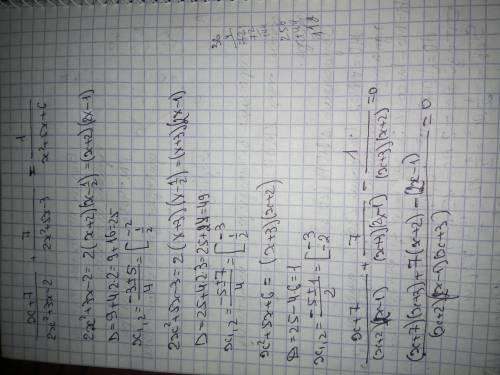 x+7/2x²+3x-2 + 7/2x²+5x-3 = 1/x²+5x+6
2x²+3x-2=2(x+2)(x-1/2)=(x+2)(2x-1)
D=9+4·2·2=9+16=25
x₁,₂=-3±5/4=[-2 1/2
2x²+5x-3=2(x+3)(x-1/2)=(x+3)(2x-1)
D=25+4·2·3=25+24=49
x₁,₂=-5±7/4=[-3 1/2
x²+5x+6=(x+3)(x+2)
D=25-4·6=1
x₁,₂=-5±1/2=[-3 -2
x+7/(x+2)(2x-1) + 7/(x+3)(2x-1) - 1/(x+3)(x+2)=0
(x+7)(x+3)+7(x+2)-(2x-1)/(x+2)(2x-1)(x+3)=0